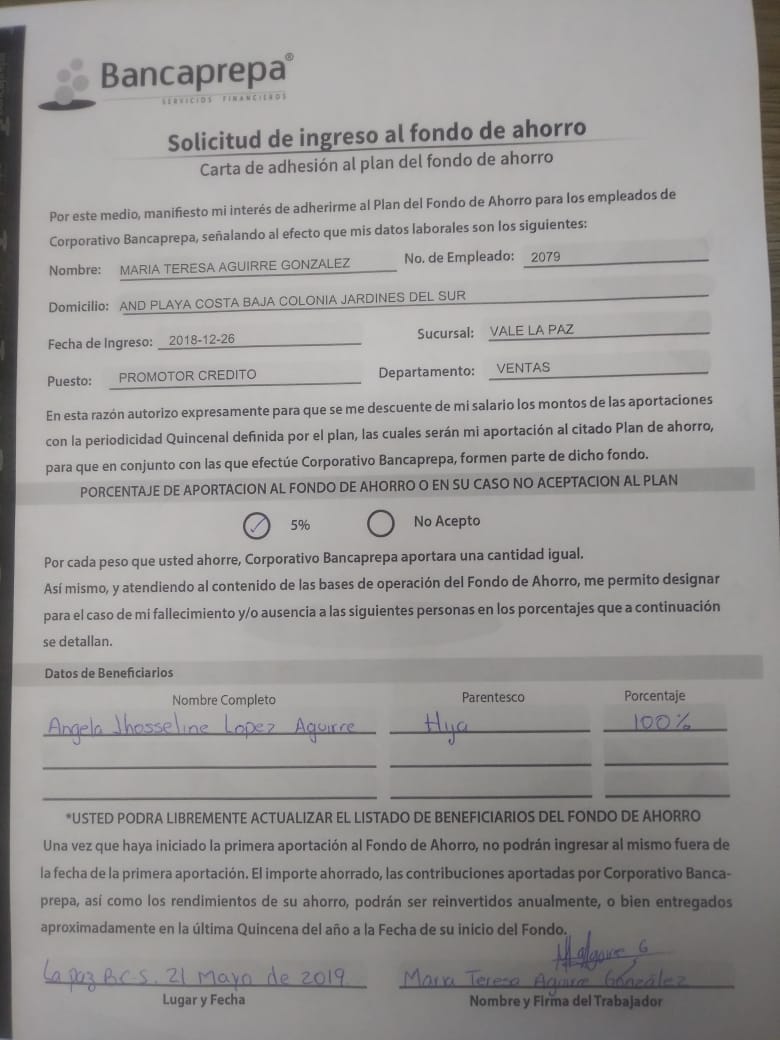 Bancaprepa®
SERVICIOS FINANCIEROS
Solicitud de ingreso al fondo de ahorro
Carta de adhesión al plan del fondo de ahorro
Por este medio, manifiesto mi interés de adherirme al Plan del Fondo de Ahorro para los empleados de
Corporativo Bancaprepa, señalando al efecto que mis datos laborales son los siguientes:
Nombre: MARIA TERESA AGUIRRE GONZALEZ No. de Empleado: 2079
Domicilio: AND PLAYA COSTA BAJA COLONIA JARDINES DEL SUR
Fecha de Ingreso: 2018-12-26 Sucursal: VALE LA PAZ
Puesto: PROMOTOR CREDITO Departamento: VENTAS
En esta razón autorizo expresamente para que se me descuente de mi salario los montos de las aportaciones
con la periodicidad Quincenal definida por el plan, las cuales serán mi aportación al citado Plan de ahorro,
para que en conjunto con las que efectúe Corporativo Bancaprepa, formen parte de dicho fondo.
PORCENTAJE DE APORTACION AL FONDO DE AHORRO O EN SU CASO NO ACEPTACION AL PLAN
5% No Acepto
Por cada peso que usted ahorre, Corporativo Bancaprepa aportara una cantidad igual.
Así mismo, y atendiendo al contenido de las bases de operación del Fondo de Ahorro, me permito designar
para el caso de mi fallecimiento y/o ausencia a las siguientes personas en los porcentajes que a continuación
se detallan.
Datos de Beneficiarios
Nombre Completo Parentesco Porcentaje
Angela Jhosseline Lopez Aguirre Hija 100%
*USTED PODRA LIBREMENTE ACTUALIZAR EL LISTADO DE BENEFICIARIOS DEL FONDO DE AHORRO
Una vez que haya iniciado la primera aportación al Fondo de Ahorro, no podrán ingresar al mismo fuera de
la fecha de la primera aportación. El importe ahorrado, las contribuciones aportadas por Corporativo Banca-
prepa, así como los rendimientos de su ahorro, podrán ser reinvertidos anualmente, o bien entregados
aproximadamente en la última Quincena del año a la Fecha de su inicio del Fondo.
La paz B.C.S. 21 Mayo de 2019 Maria Teresa Aguirre González
Lugar y Fecha Nombre y Firma del Trabajador